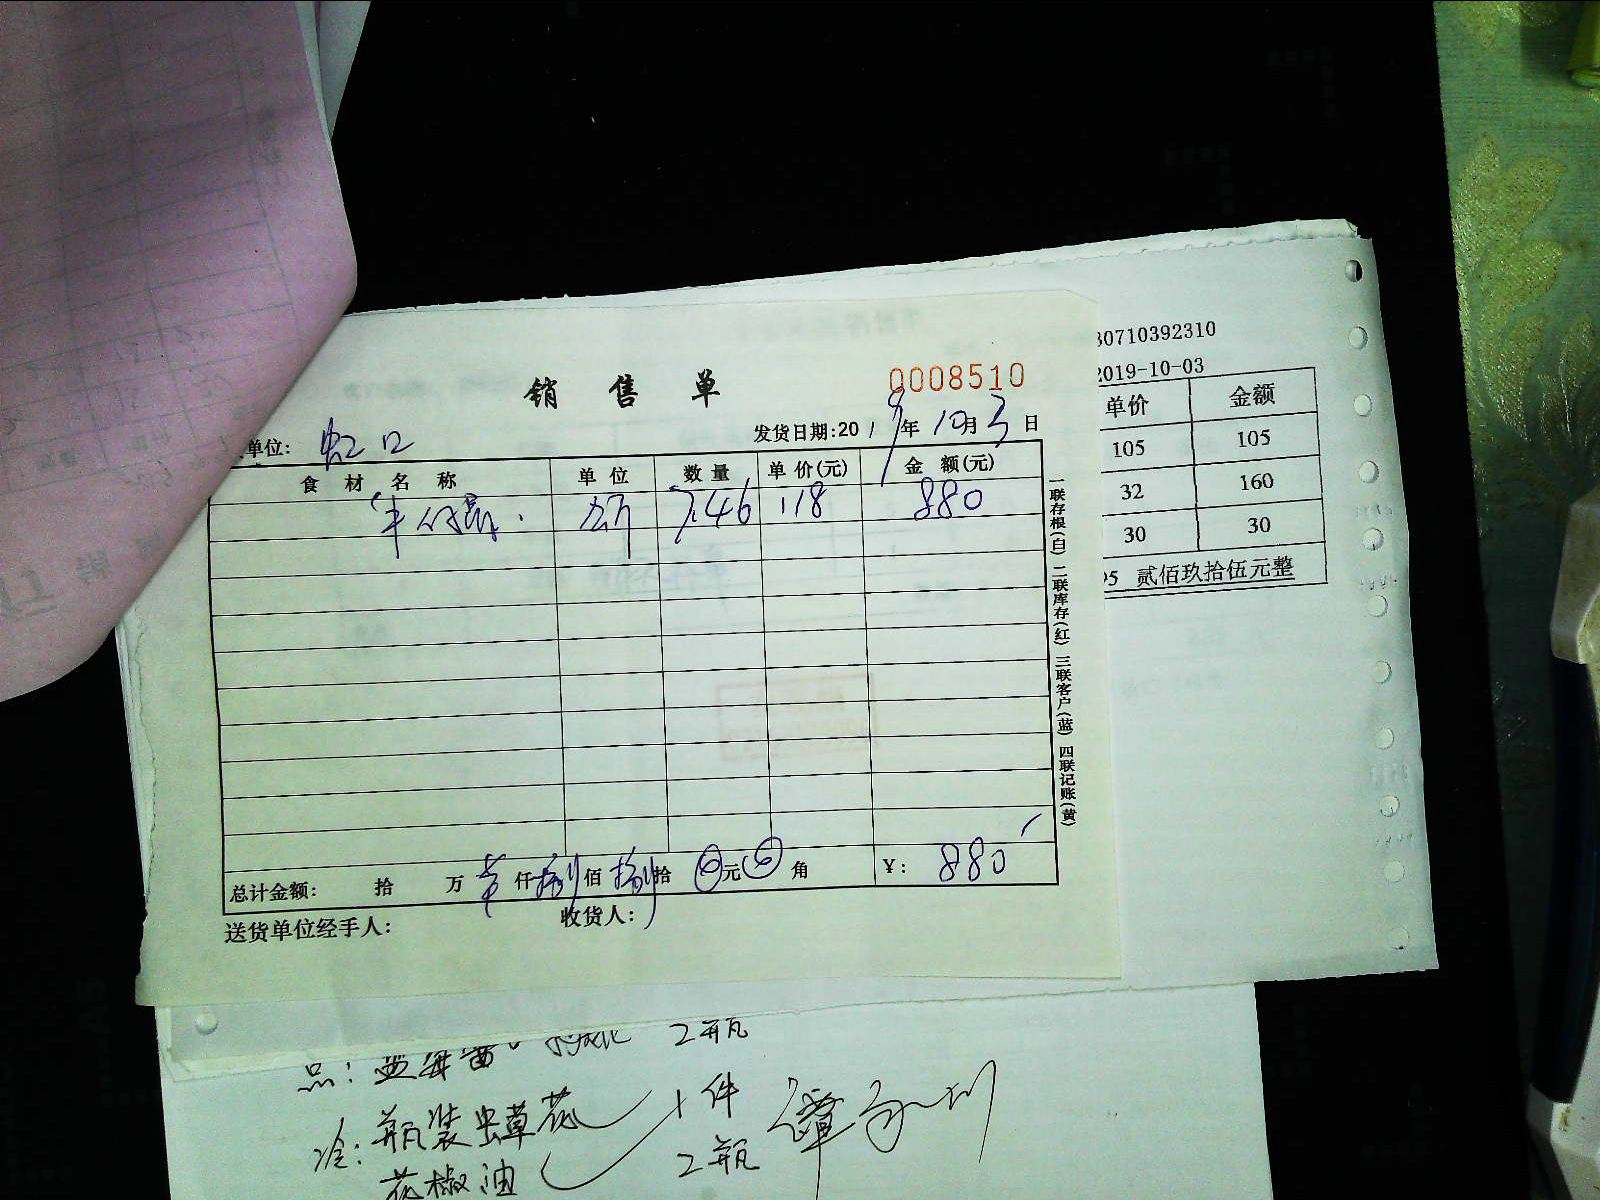 30710392310
2019-10-03
单价 金额
105 105
32 160
30 30
95 贰佰玖拾伍元整
销售单
0008510
单位: 虹口
发货日期:2019年10月3日
食材名称 单位 数量 单价(元) 金额(元)
斤 7.46 118 880
总计金额: 拾 万 仟捌佰捌拾0元0角 ¥: 880
送货单位经手人: 收货人:
一联存根(白) 二联库存(红) 三联客户(蓝) 四联记账(黄)
品: 2瓶
冷: 瓶装虫草花 1件
花椒油 2瓶